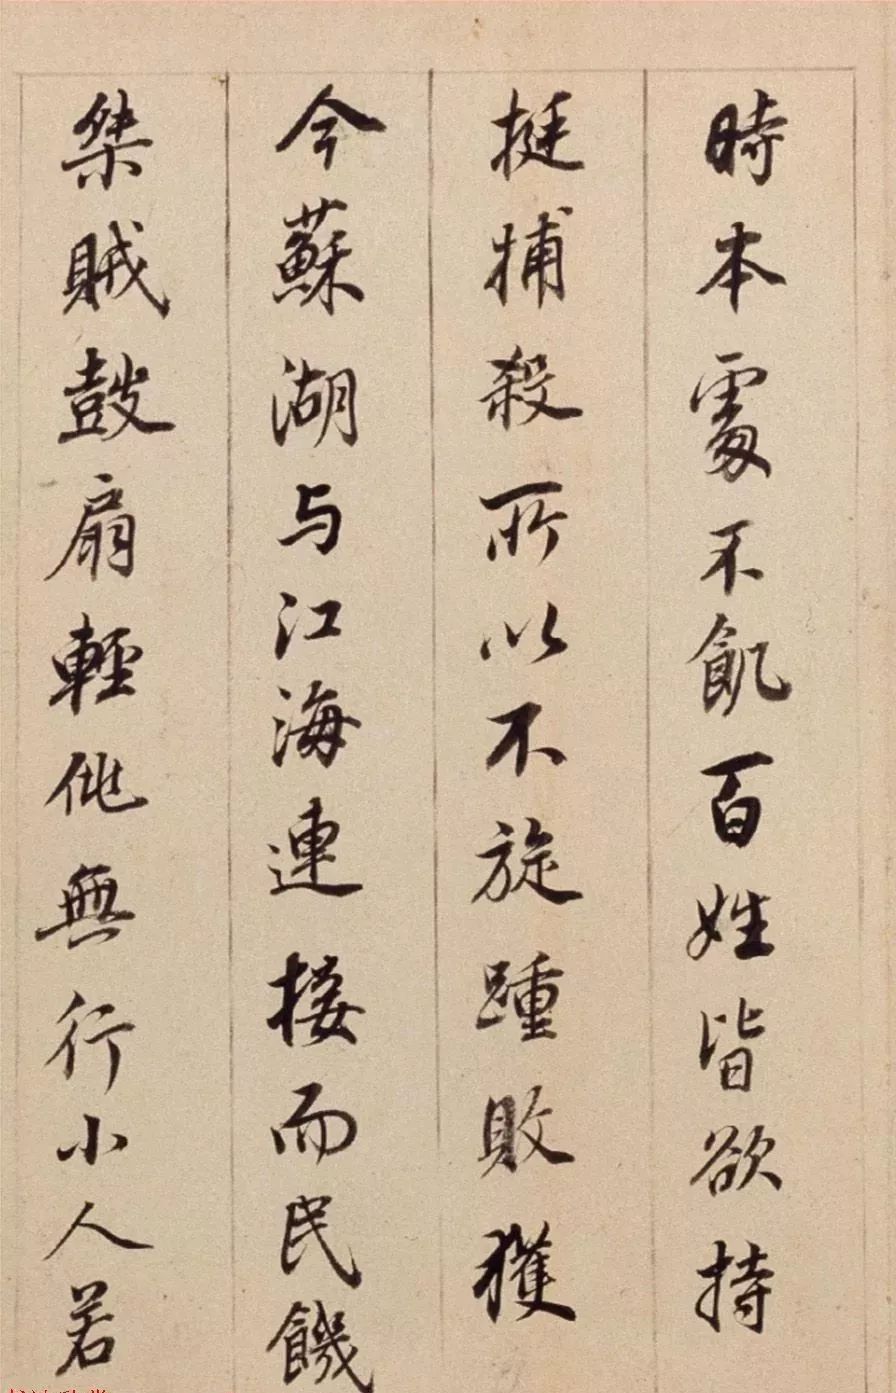 時本處不飢百姓皆欲持
挺捕殺所以不旋踵敗獲
今蘇湖与江海連接而民饑
桀賊鼓扇輕佻無行小人若